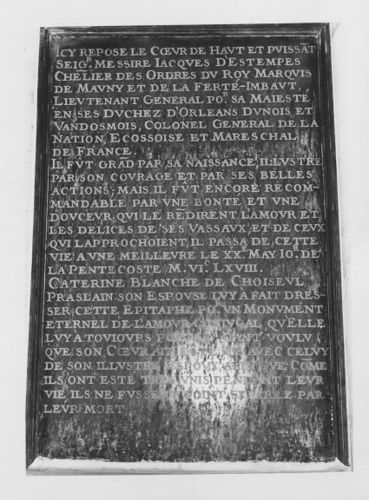 ICY REPOSE LE CŒUR DE HAUT ET PUISSĀT
SEIGR. MESSIRE IACQUES D'ESTEMPES
CHELIER DES ORDRES DU ROY MARQUIS
DE MAUNY ET DE LA FERTÉ-IMBAUT,
LIEUTENANT GENERAL POR. SA MAIESTE
EN SES DUCHEZ D'ORLEANS DUNOIS ET
VANDOSMOIS, COLONEL GENERAL DE LA
NATION ECOSSOISE ET MARESCHAL
DE FRANCE.
IL FUT GRĀD PAR SA NAISSANCE, ILLUSTRE
PAR SON COURAGE ET PAR SES BELLES
ACTIONS; MAIS IL FÛT ENCORE RECOM-
MANDABLE PAR UNE BONTE ET UNE
DOUCEUR QUI LE RĒDIRENT L'AMOUR ET
LES DELICES DE SES VASSAUX, ET DE CEUX
QUI LAPPROCHOIENT, IL PASSA DE CETTE
VIE A UNE MEILLEURE LE XXE. MAY IOR. DE
LA PENTECOSTE M. VIC. LXVIII.
CATERINE BLANCHE DE CHOISEUL
PRASLAIN SON ESPOUSE LUY A FAIT DRES-
SER CETTE EPITAPHE POR. UN MONUMENT
ETERNEL DE L'AMOUR CŌIUGAL QU'ELLE
LUY A TOUIOURS VOULU
QUE SON CŒUR AVEC CELUY
DE SON ILLUSTRE COME
ILS ONT ESTE UNIS PENDANT LEUR
VIE ILS NE FUSSENT POINT PAR
LEUR MORT